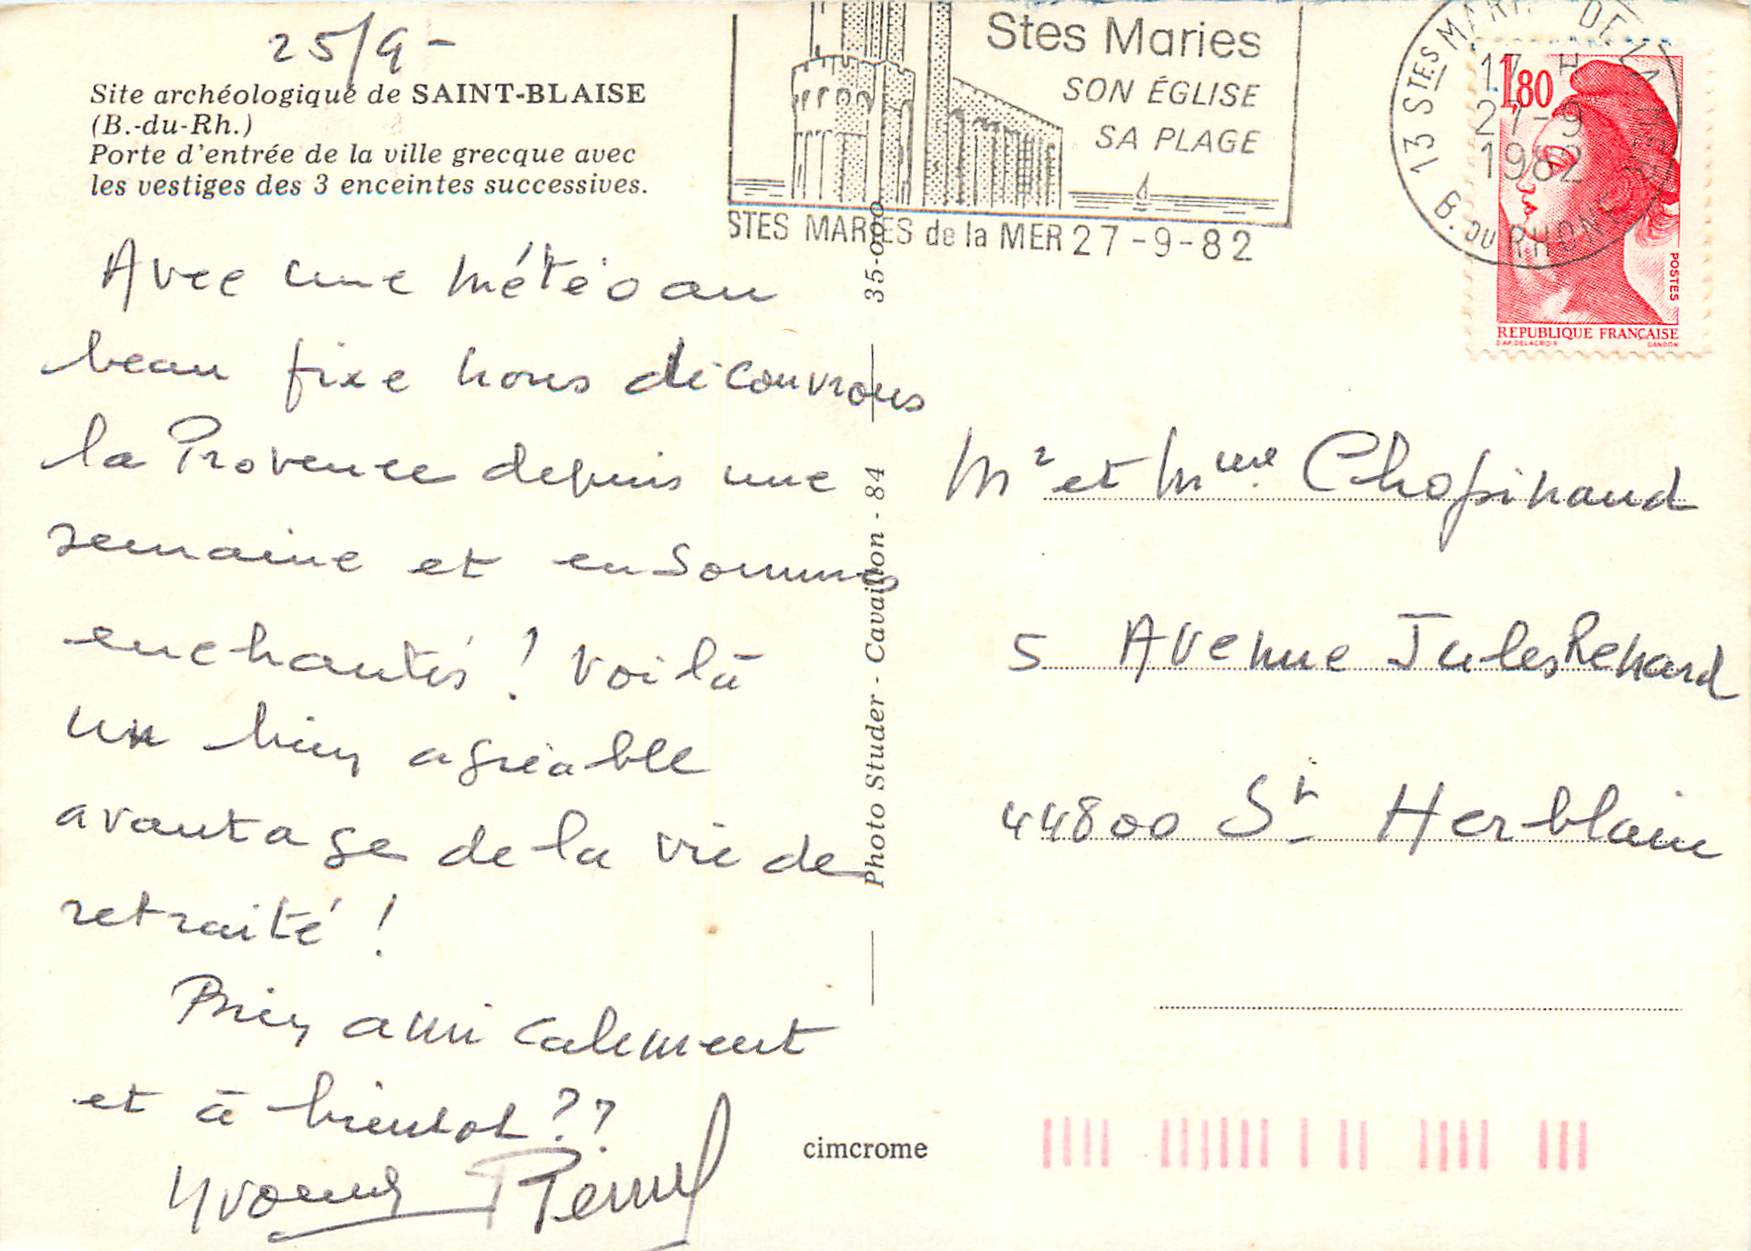 25/9-
Site archéologique de SAINT-BLAISE
(B.-du-Rh.)
Porte d'entrée de la ville grecque avec
les vestiges des 3 enceintes successives.
Avec une météo au
beau fixe nous découvrons
la Provence depuis une
semaine et en sommes
enchantés ! Voilà
un bien agréable
avantage de la vie de
retraité !
Bien amicalement
et à bientot ??
Yvonne
Photo Studer - Cavaillon - 84
35-000
cimcrome
Stes Maries
SON ÉGLISE
SA PLAGE
STES MARIES de la MER 27-9-82
13 STES MARIES DE LA MER
17 H
27-9
1982
B. DU RHONE
1,80
POSTES
REPUBLIQUE FRANÇAISE
D'AP. DELACROIX GANDON
Mr et Mme Chopinaud
5 Avenue Jules Renard
44800 St Herblain